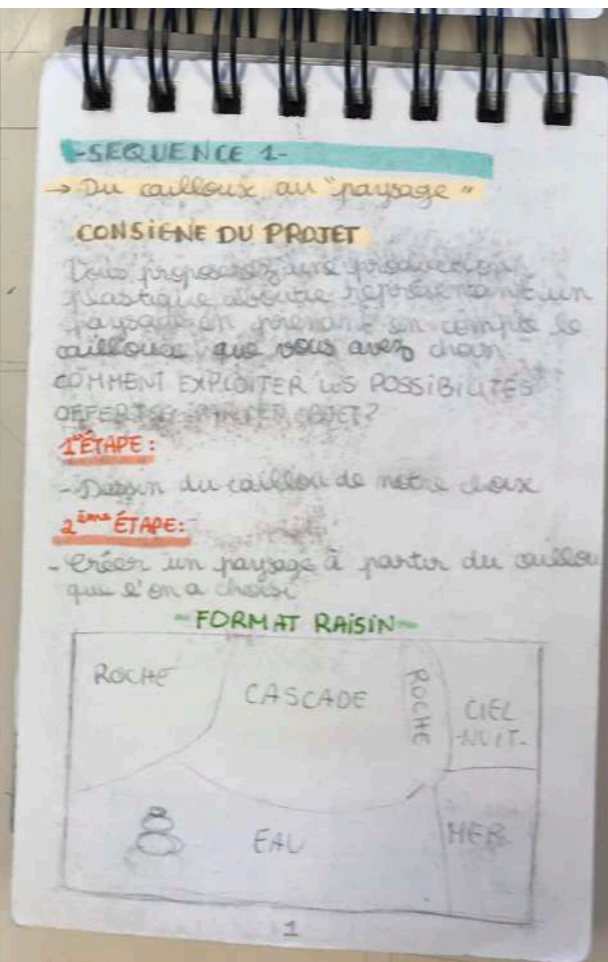 -SEQUENCE 1-
→ Du cailloux au "paysage"
CONSIGNE DU PROJET
Vous proposerez une production
plastique aboutie représentant un
paysage en prenant en compte le
cailloux que vous avez choisi
COMMENT EXPLOITER LES POSSIBILITÉS
OFFERTES PAR CET OBJET?
1ère ÉTAPE:
- Dessin du caillou de notre choix
2ème ÉTAPE:
- Créer un paysage à partir du caillou
que l'on a choisi
-FORMAT RAISIN-
ROCHE
CASCADE
ROCHE
CIEL
-NUIT-
EAU
MER
1